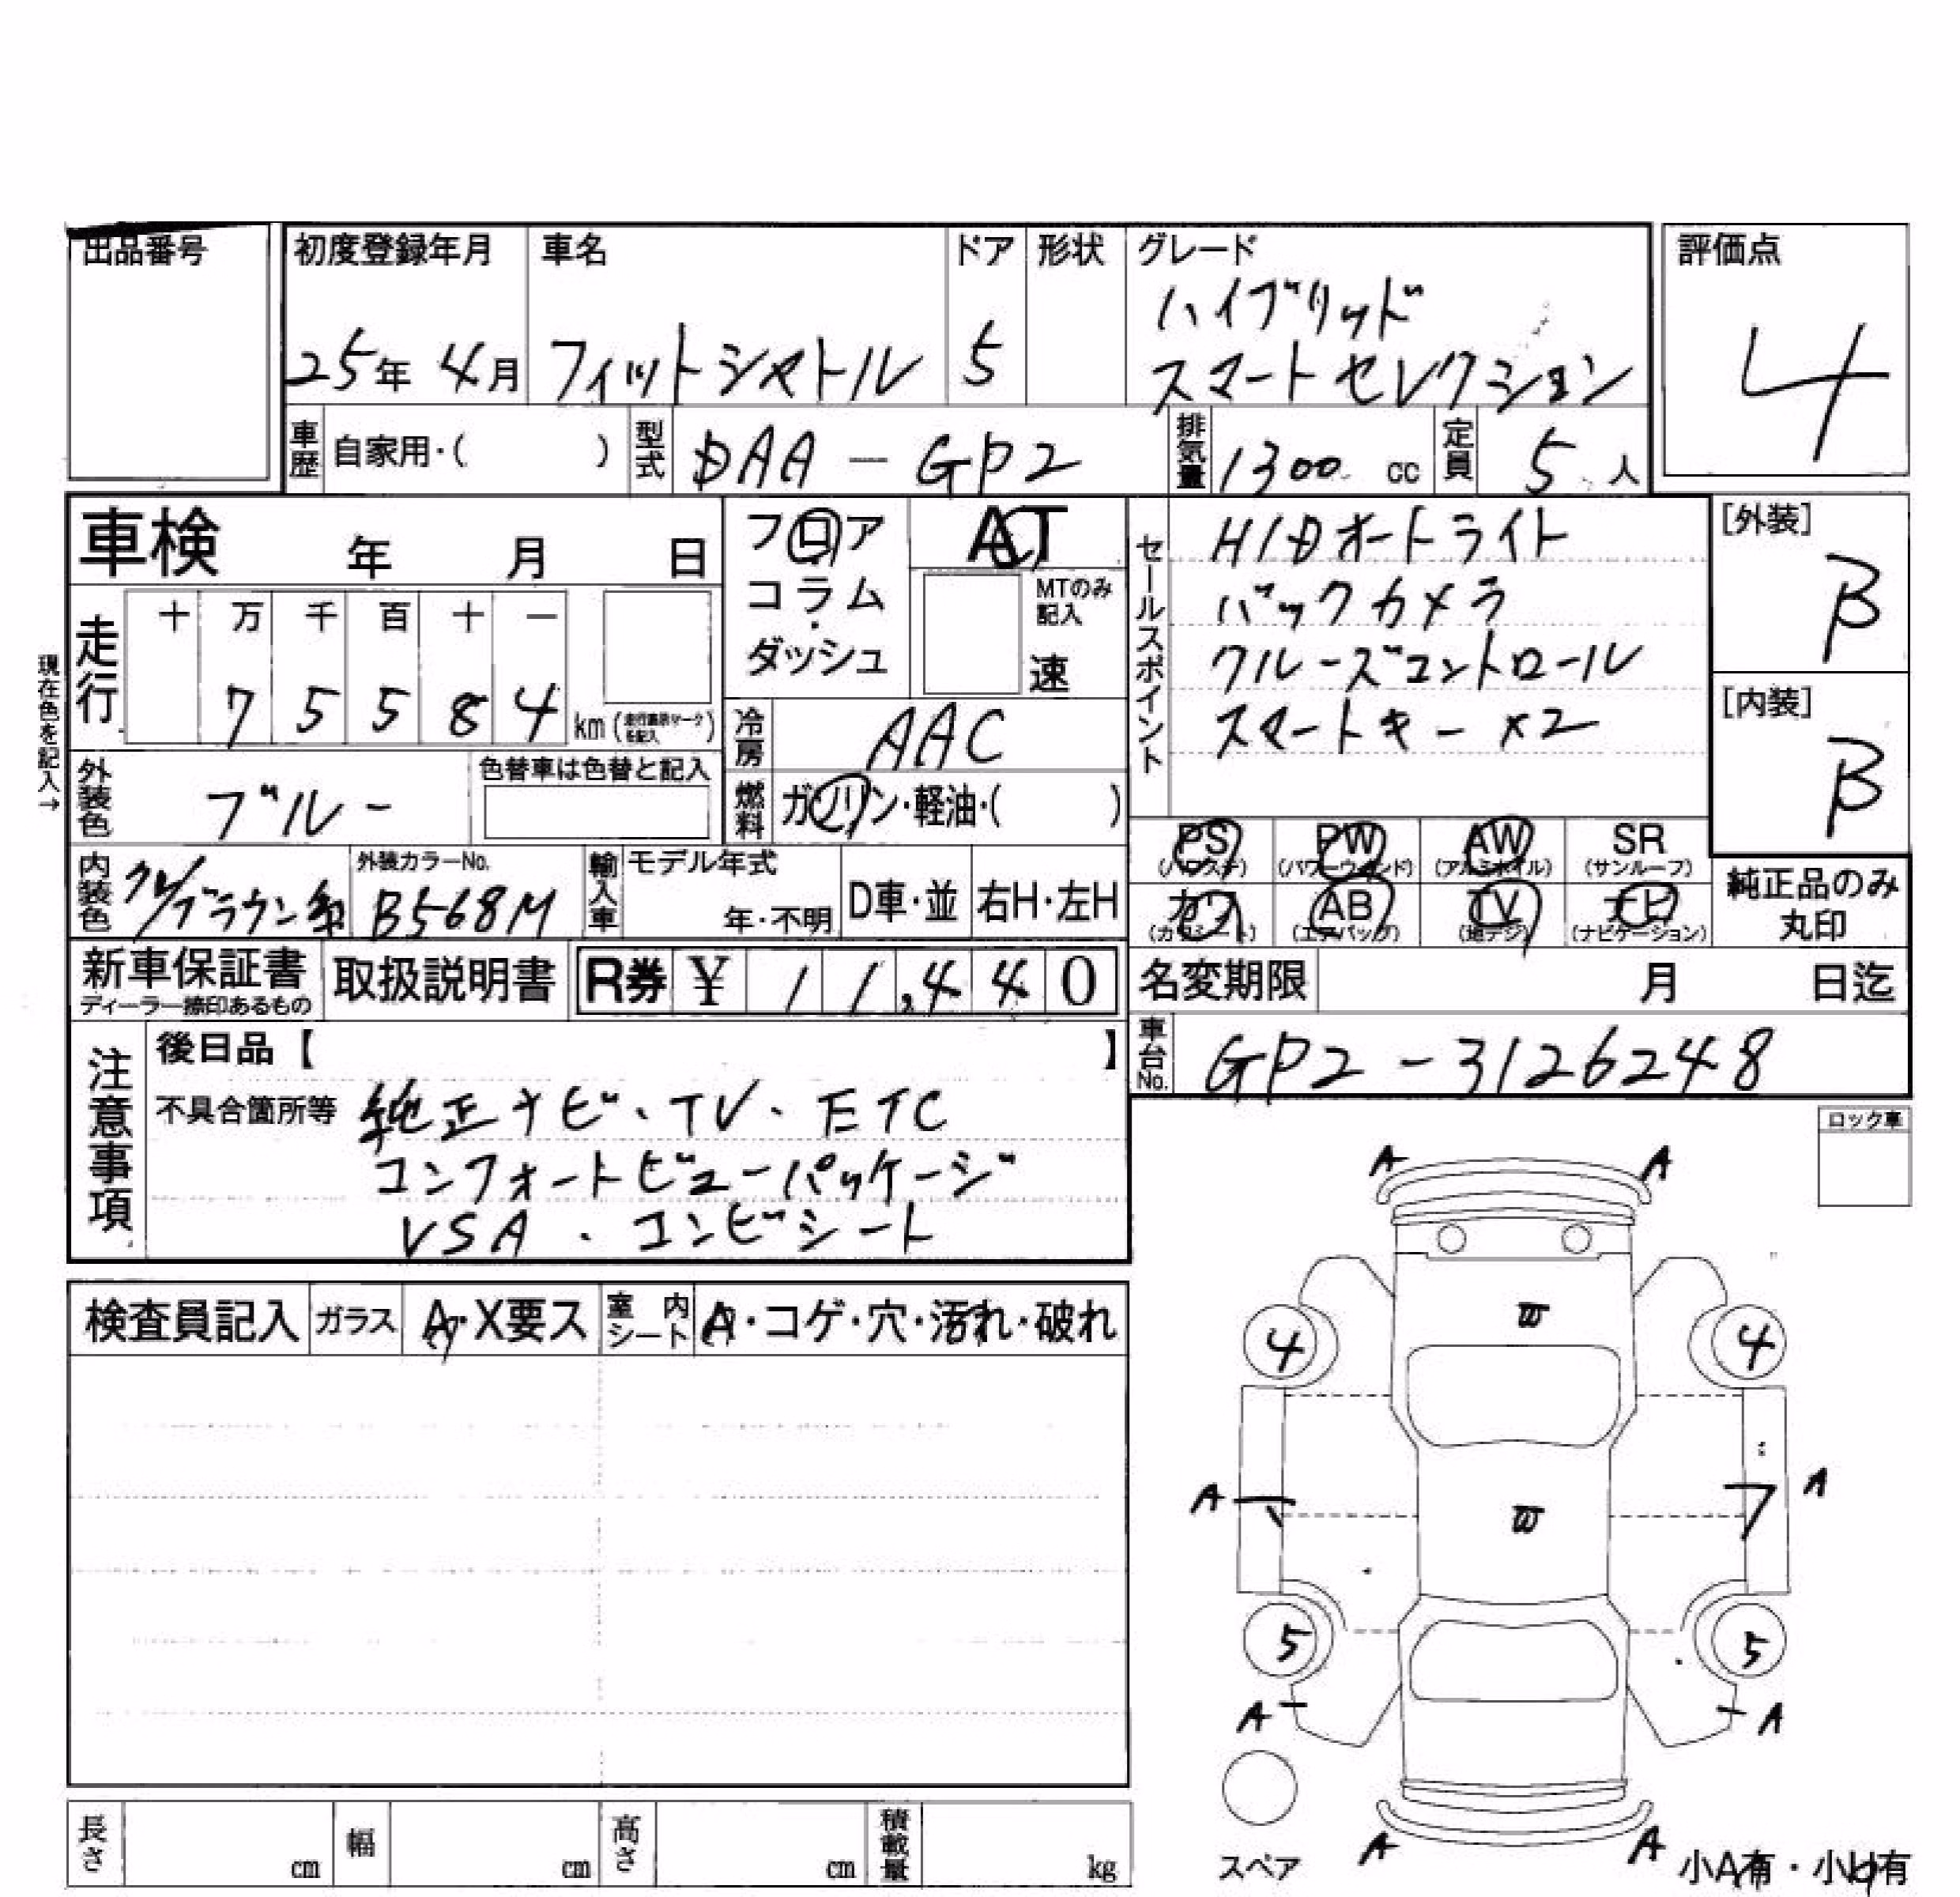 出品番号
初度登録年月 車名 ドア 形状 グレード 評価点
ハイブリッド
25年 4月 フィットシャトル 5 スマートセレクション 4
車歴 自家用・( ) 型式 DAA-GP2 排気量 1300 cc 定員 5 人
車検 年 月 日
フロア AT
コラム・ MTのみ記入
ダッシュ 速
セールスポイント
HIDオートライト
バックカメラ
クルーズコントロール
スマートキー×2
[外装] B
[内装] B
現在色を記入→
走行 十 万 千 百 十 一
7 5 5 8 4 km (走行画示マークを記入)
冷房 AAC
外装色 ブルー 色替車は色替と記入
燃料 ガソリン・軽油・( )
PS PW AW SR
(パワステ) (パワーウィンド) (アルミホイル) (サンルーフ)
カワ AB TV ナビ
(カワシート) (エアバッグ) (地デジ) (ナビゲーション)
純正品のみ
丸印
内装色 グレ/ブラウン系 外装カラーNo. B568M 輸入車 モデル年式 年・不明 D車・並 右H・左H
新車保証書 取扱説明書 R券 ¥ 11,440
ディーラー捺印あるもの
名変期限 月 日迄
車台No. GP2-3126248
注意事項
後日品【 】
不具合箇所等 純正ナビ・TV・ETC
コンフォートビューパッケージ
VSA・コンビシート
ロック車
検査員記入 ガラス A・X要ス 室内シート A・コゲ・穴・汚れ・破れ
A A
W
4 4
A A
W
5 5
A A
スペア
A A
小A有・小U有
長さ cm 幅 cm 高さ cm 積載量 kg